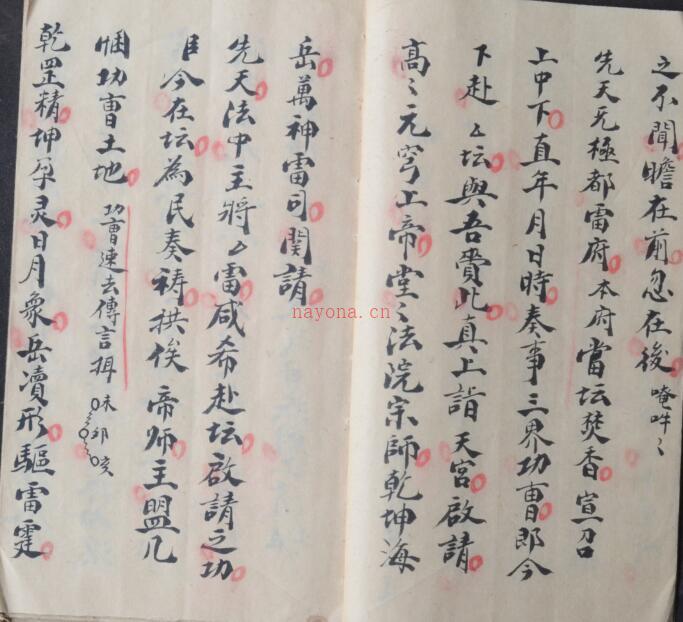 之不聞瞻在前忽在後 唵吽〻
先天无極都雷府本府當坛焚香宣召
上中下直年月日時奏事三界功曹郎今
下赴厶坛與吾賫此真上詣天宮啟請
高〻元穹上帝堂〻法院宗師乾坤海
岳萬神雷司関請
先天法中主將厶雷咸希赴坛啟請之功
臣今在坛為民奏祷拱俟帝師主盟几
悃功曹土地 功曹速去傳言
乾罡精坤孕灵日月象岳瀆形驅雷霆
nayona.cn